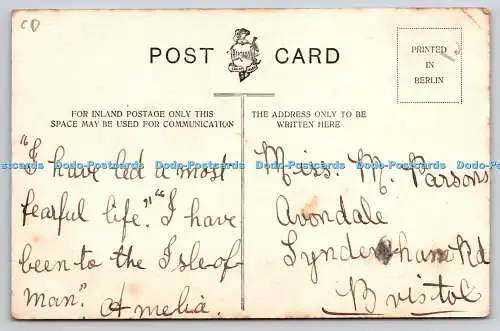 CD
POST CARD
PRINTED
IN
BERLIN
FOR INLAND POSTAGE ONLY THIS
SPACE MAY BE USED FOR COMMUNICATION
THE ADDRESS ONLY TO BE
WRITTEN HERE
"I have led a most
fearful life." "I have
been to the Isle-of-
man". Amelia.
Miss. M. Parsons
Avondale
Lyndenham Rd
Bristol
Dodo-Postcards Dodo-Postcards Dodo-Postcards Dodo-Postcards Dodo-Postcards